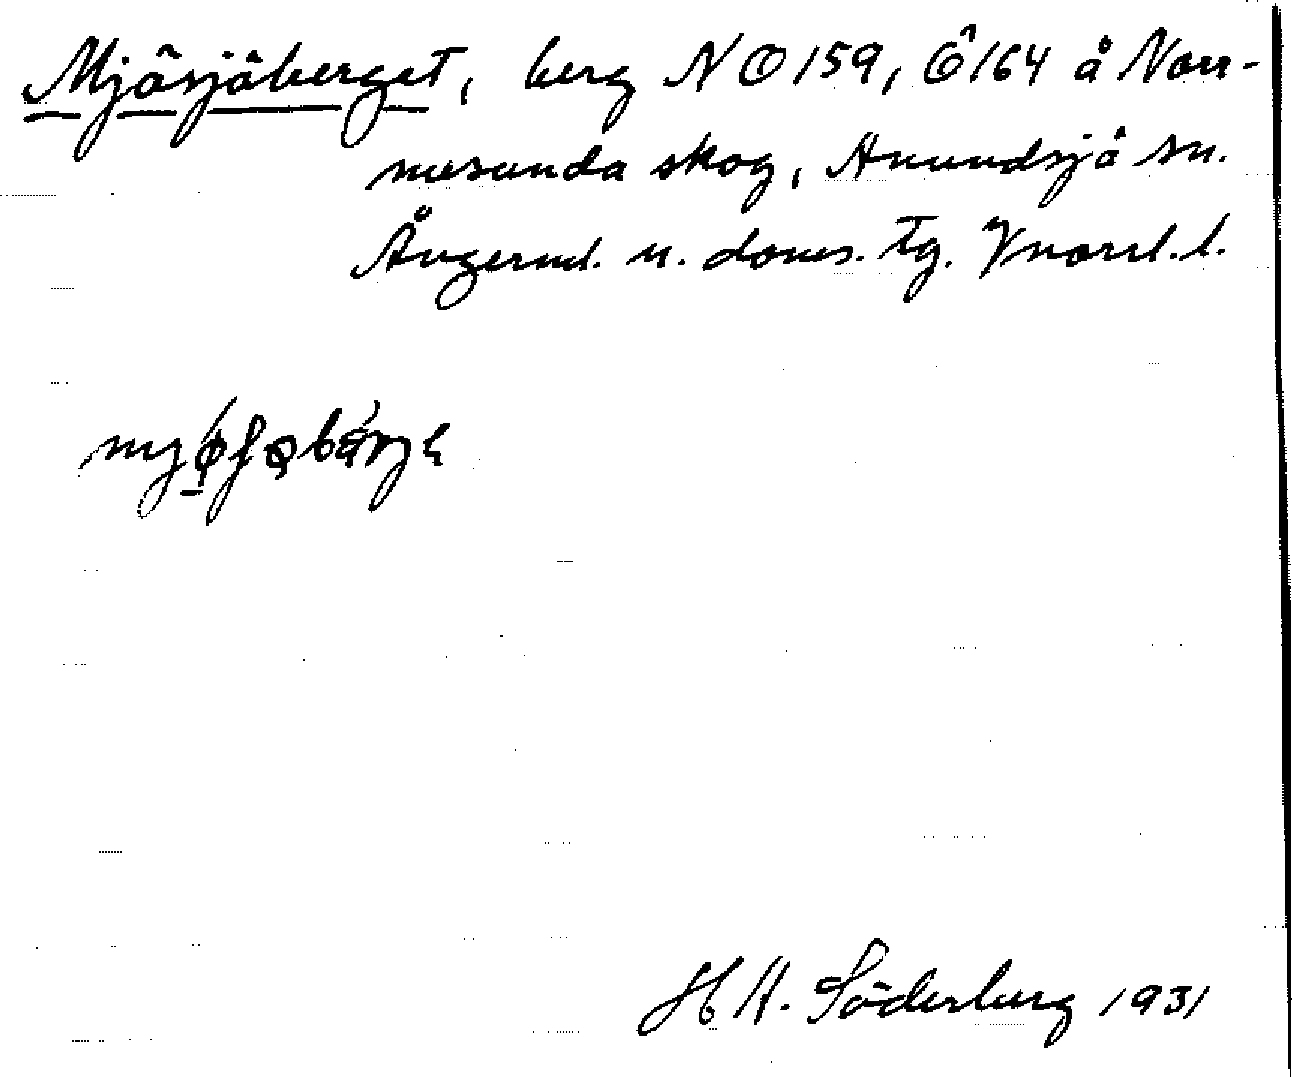 Mjösjöberget, berg NO 159, Ö 164 å Norr-
mesunda skog, Anundsjö sn.
Ångerml. n. doms. tg. Vnorrl. l.
H A. Söderberg 1931